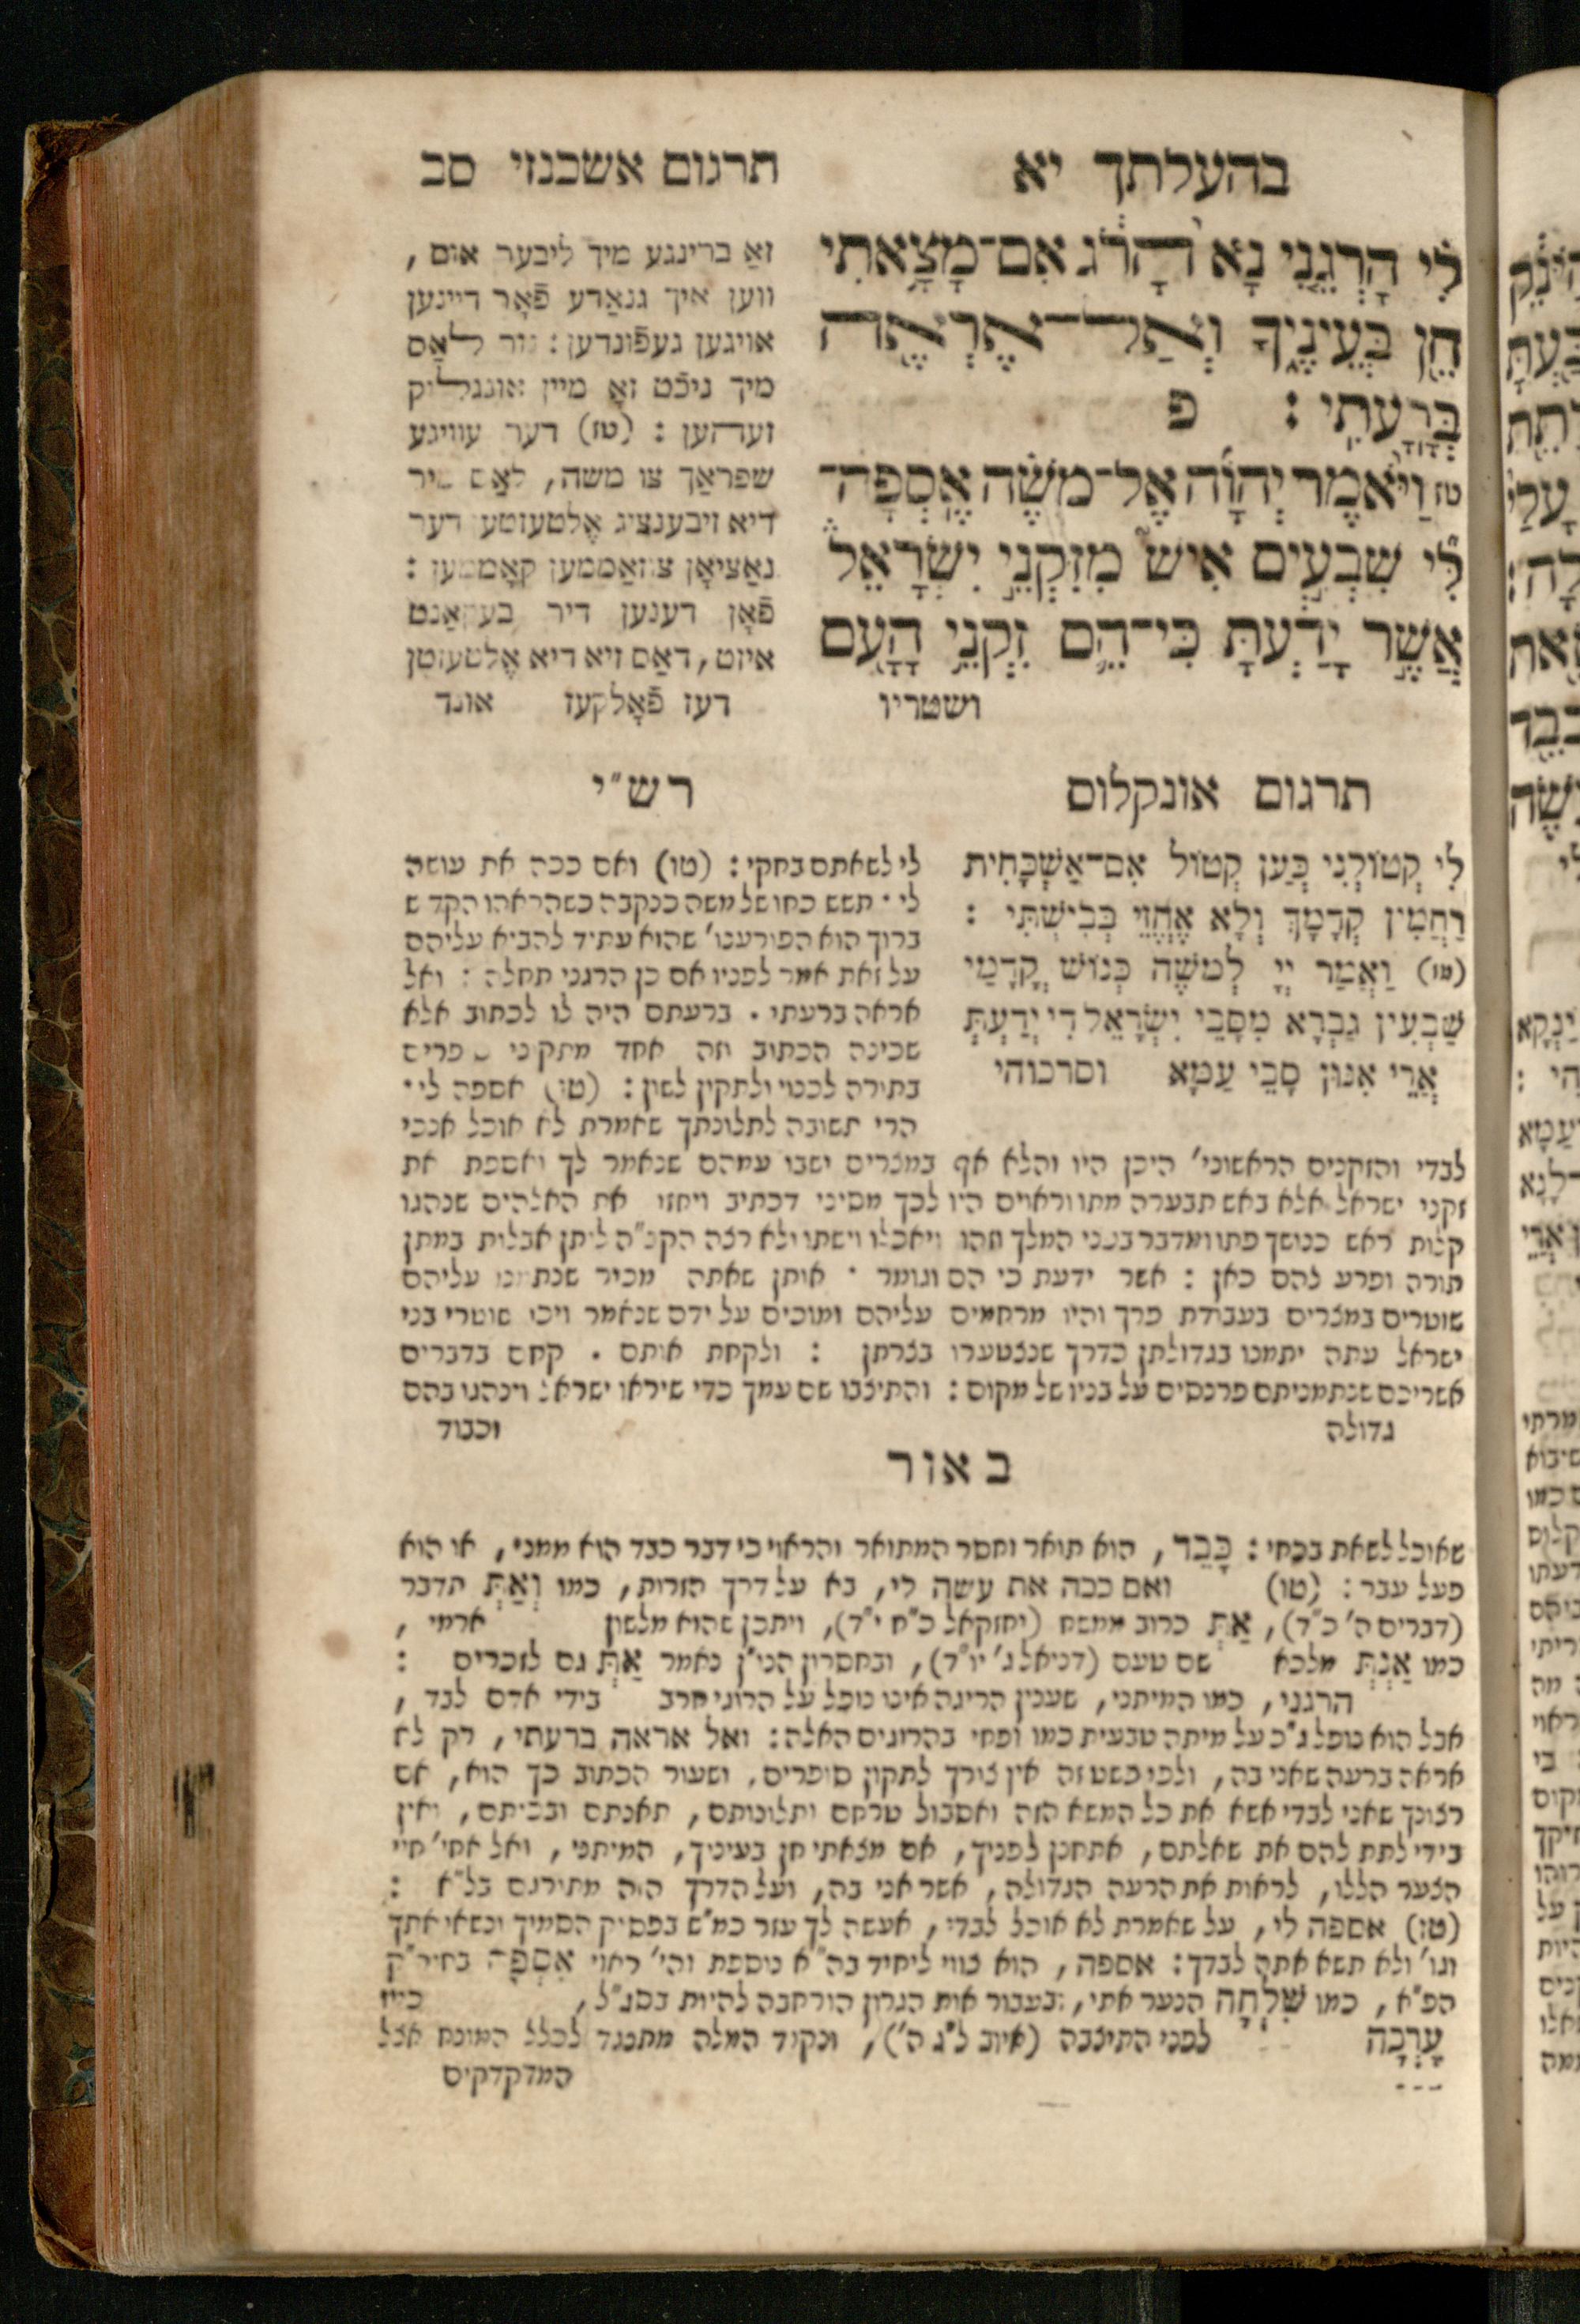 בהעלתך יא
תרגום אשכנזי סב
לִי הָרְגֵנִי נָא הָרֹג אִם־מָצָאתִי
חֵן בְּעֵינֶיךָ וְאַל־אֶרְאֶה
בְּרָעָתִי : פ
טז וַיֹּאמֶר יְהוָֹה אֶל־מֹשֶׁה אֶסְפָה־
לִּי שִׁבְעִים אִישׁ מִזִּקְנֵי יִשְׂרָאֵל
אֲשֶׁר יָדַעְתָּ כִּי־הֵם זִקְנֵי הָעָם
ושטריו
זאַ ברינגע מיך ליבער אום ,
ווען איך גנאַדע פֿאָר דיינען
אויגען געפֿונדען : נור לאַס
מיך ניכֿט זאָ מיין אונגליק
זעהען : (טז) דער עוויגע
שפראַך צו משה, לאַס מיר
דיא זיבענציג אֶלטעזטע דער
נאַציאָן צוזאַממען קאָממען :
פֿאָן דענען דיר בעקאַנט
איזט, דאַס זיא דיא אֶלטעזטן
דעז פֿאָלקעז אונד
תרגום אונקלוס
לִי קְטוֹלְנִי כְּעַן קְטוֹל אִם־אַשְׁכָּחִית
רַחֲמִין קֳדָמָךְ וְלָא אֶחֱזֵי בְּבִישְׁתִּי :
(טז) וַאֲמַר יְיָ לְמֹשֶׁה כְּנוֹשׁ קֳדָמַי
שַׁבְעִין גַּבְרָא מִסָּבֵי יִשְׂרָאֵל דִּי יְדַעְתְּ
אֲרֵי אִנּוּן סָבֵי עַמָּא וסרכוהי
רש״י
לי לשאתם בחקי : (טו) ואם ככה את עושה
לי · תשש כחו של משה כנקבה כשהראהו הקדש
ברוך הוא הפורענו׳ שהוא עתיד להביא עליהם
על זאת אמר לפניו אם כן הרגני תחלה : ואל
אראה ברעתי . ברעתם היה לו לכתוב אלא
שכינה הכתוב וזה אחד מתקוני סופרים
בתורה לכנוי ולתקון לשון : (טז) אספה לי ·
הרי תשובה לתלונתך שאמרת לא אוכל אנכי
לבדי והזקנים הראשוני׳ היכן היו והלא אף במצרים ישבו עמהם שנאמר לך ואספת את
זקני ישראל אלא באש תבערה מתו וראוים היו לכך מסיני דכתיב ויחזו את האלהים שנהגו
קלות ראש כנושך פתו ומדבר בפני המלך וזהו ויאכלו וישתו ולא רצה הקב״ה ליתן אבלות במתן
תורה ופרע להם כאן : אשר ידעת כי הם וגומר · אותן שאתה מכיר שנתמנו עליהם
שוטרים במצרים בעבודת פרך והיו מרחמים עליהם ומוכים על ידם שנאמר ויכו שוטרי בני
ישראל עתה יתמנו בגדולתן כדרך שנצטערו בצרתן : ולקחת אותם . קחם בדברים
אשריכם שנתמניתם פרנסים על בניו של מקום : והתיצבו שם עמך כדי שיראו ישראל וינהגו בהם
גדולה וכבוד
באור
שאוכל לשאת בכחי : כָּבֵד , הוא תואר וחסר המתואר והראוי כי דבר כבד הוא ממני, או הוא
פעל עבר : (טו) ואם ככה את עשה לי, בא על דרך הזרות, כמו וְאַתְּ תדבר
(דברים ה׳ כ״ד), אַתְּ כרוב ממשח (יחזקאל כ״ח י״ד), ויתכן שהוא מלשון ארמי ,
כמו אַנְתְּ מלכא שם טעם (דניאל ג׳ יו״ד), ובחסרון הנו״ן נאמר אַתְּ גם לזכרים :
הרגני, כמו המיתני, שענין הריגה איננו נופל על הרוגי חרב בידי אדם לבד ,
אבל הוא נופל ג״כ על מיתה טבעית כמו ופחי בהרוגים האלה : ואל אראה ברעתי, רק לא
אראה ברעה שאני בה, ולפי פשט זה אין צורך לתקון סופרים, ושעור הכתוב כך הוא, אם
רצונך שאני לבדי אשא את כל המשא הזה ואסבול טרחם ותלונותם, תאנתם ובכיתם, ואין
בידי לתת להם את שאלתם, אתחנן לפניך, אם מצאתי חן בעיניך, המיתני, ואל אחי׳ חיי
הצער הללו, לראות את הרעה הגדולה, אשר אני בה, ועל הדרך הזה מתורגם בל״א :
(טז) אספה לי, על שאמרת לא אוכל לבדי, אעשה לך עזר כמ״ש בפסוק הסמוך ונשאו אתך
וגו׳ ולא תשא אתה לבדך : אספה, הוא צווי ליחיד בה״א נוספת והי׳ ראוי אִסְפָה בחיר״ק
הפ״א, כמו שִׁלְחָה הנער אתי, ובעבור אות הגרון הורחבה להיות בסג״ל, כמו
עֶרְכָה לפני התיצבה (איוב ל״ג ה׳), ונקוד המלה מתנגד לכלל המונח אצל
המדקדקים